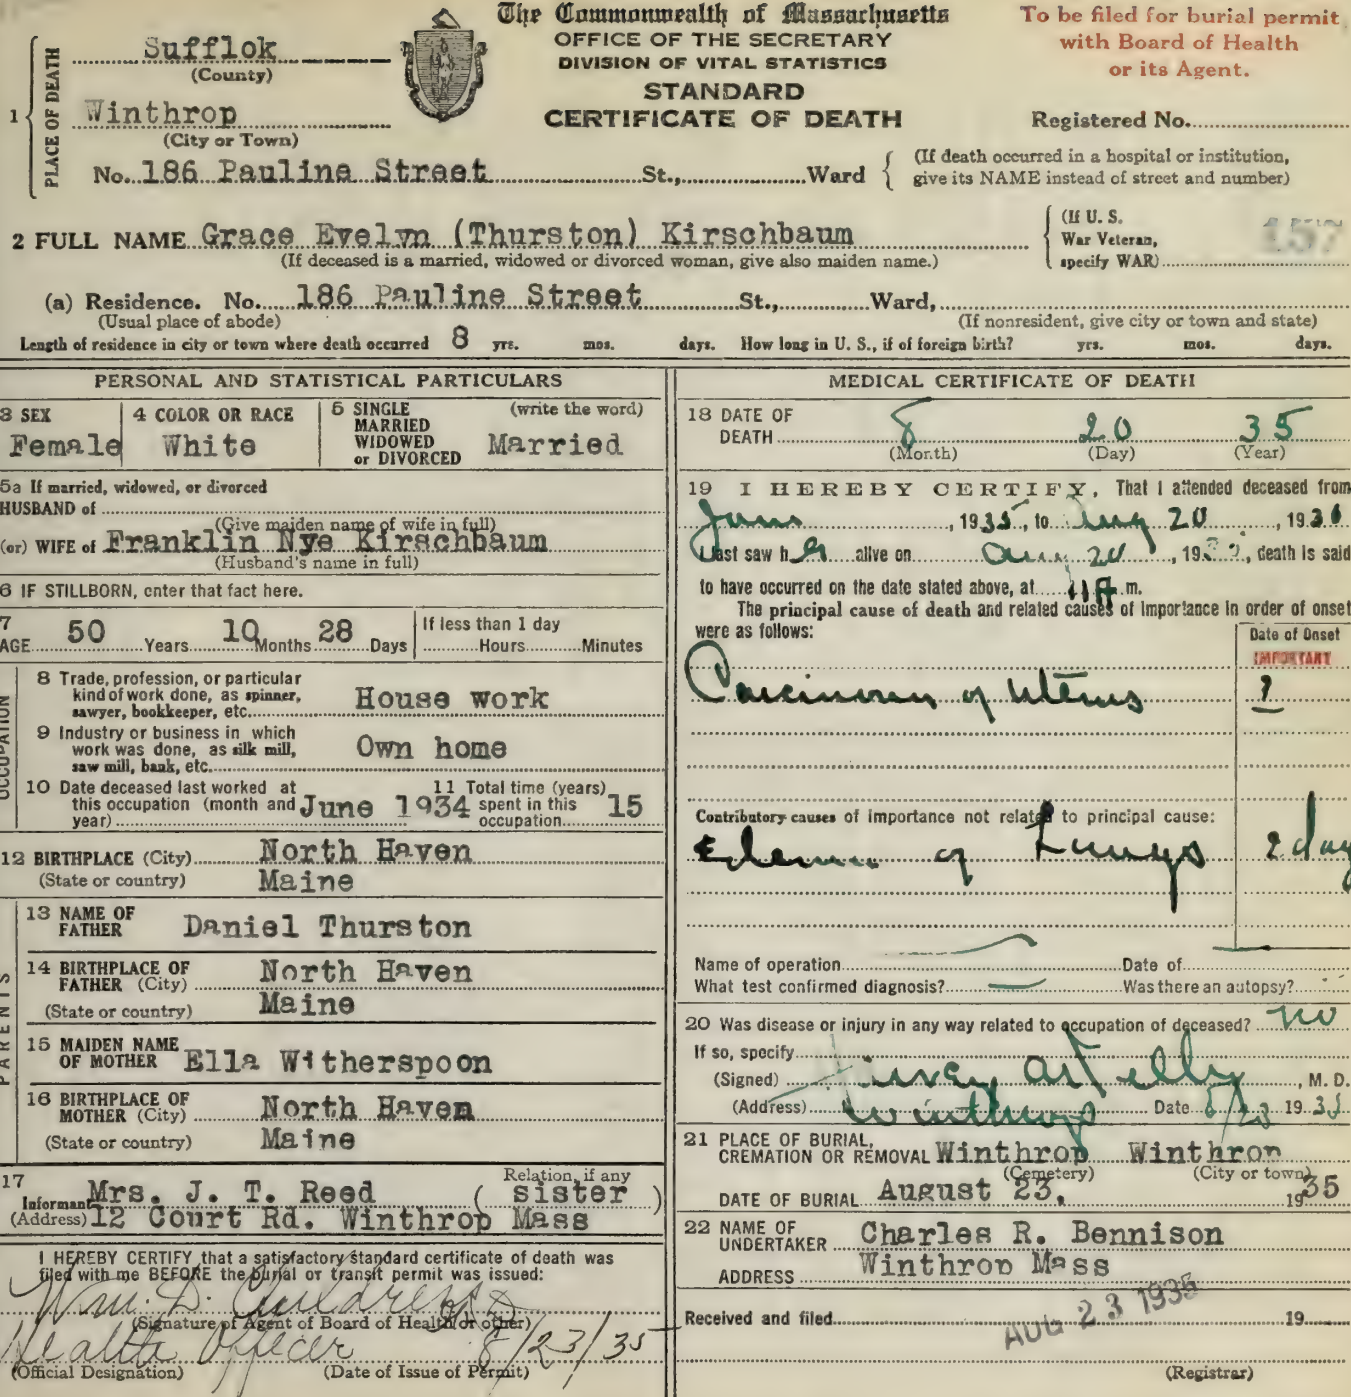 The Commonwealth of Massachusetts
OFFICE OF THE SECRETARY
DIVISION OF VITAL STATISTICS
STANDARD
CERTIFICATE OF DEATH
To be filed for burial permit
with Board of Health
or its Agent.
Registered No.
1 PLACE OF DEATH
Sufflok
(County)
Winthrop
(City or Town)
No. 186 Pauline Street St., Ward
(If death occurred in a hospital or institution,
give its NAME instead of street and number)
2 FULL NAME Grace Evelyn (Thurston) Kirschbaum
(If deceased is a married, widowed or divorced woman, give also maiden name.)
(If U. S.
War Veteran,
specify WAR)
157
(a) Residence. No. 186 Pauline Street St., Ward,
(Usual place of abode) (If nonresident, give city or town and state)
Length of residence in city or town where death occurred 8 yrs. mos. days. How long in U. S., if of foreign birth? yrs. mos. days.
PERSONAL AND STATISTICAL PARTICULARS
3 SEX
Female
4 COLOR OR RACE
White
5 SINGLE
MARRIED
WIDOWED
or DIVORCED
(write the word)
Married
5a If married, widowed, or divorced
HUSBAND of
(Give maiden name of wife in full)
(or) WIFE of Franklin Nye Kirschbaum
(Husband's name in full)
6 IF STILLBORN, enter that fact here.
7
AGE 50 Years 10 Months 28 Days
If less than 1 day
Hours Minutes
OCCUPATION
8 Trade, profession, or particular
kind of work done, as spinner,
sawyer, bookkeeper, etc. House work
9 Industry or business in which
work was done, as silk mill,
saw mill, bank, etc. Own home
10 Date deceased last worked at
this occupation (month and
year) June 1934
11 Total time (years)
spent in this
occupation 15
12 BIRTHPLACE (City) North Haven
(State or country) Maine
PARENTS
13 NAME OF
FATHER Daniel Thurston
14 BIRTHPLACE OF
FATHER (City) North Haven
(State or country) Maine
15 MAIDEN NAME
OF MOTHER Ella Witherspoon
16 BIRTHPLACE OF
MOTHER (City) North Haven
(State or country) Maine
17
Informant Mrs. J. T. Reed
Relation, if any
(sister)
(Address) 12 Court Rd. Winthrop Mass
I HEREBY CERTIFY that a satisfactory standard certificate of death was
filed with me BEFORE the burial or transit permit was issued:
Wm. D. Childress
(Signature of Agent of Board of Health or other)
Health Officer 8/23/35
(Official Designation) (Date of Issue of Permit)
MEDICAL CERTIFICATE OF DEATH
18 DATE OF
DEATH 8 20 35
(Month) (Day) (Year)
19 I HEREBY CERTIFY, That I attended deceased from
June, 1935, to Aug 20, 193
I last saw her alive on Aug 20, 193, death is said
to have occurred on the date stated above, at 11A m.
The principal cause of death and related causes of importance in order of onset
were as follows:
Date of Onset
IMPORTANT
Carcinoma of Uterus ?
Contributory causes of importance not related to principal cause:
Edema of Lungs 2 day
Name of operation Date of
What test confirmed diagnosis? Was there an autopsy?
20 Was disease or injury in any way related to occupation of deceased? no
If so, specify
(Signed) , M. D.
(Address) Winthrop Date 8/20 1935
21 PLACE OF BURIAL,
CREMATION OR REMOVAL Winthrop Winthrop
(Cemetery) (City or town)
DATE OF BURIAL August 23, 1935
22 NAME OF
UNDERTAKER Charles R. Bennison
ADDRESS Winthrop Mass
Received and filed 19
AUG 23 1935
(Registrar)